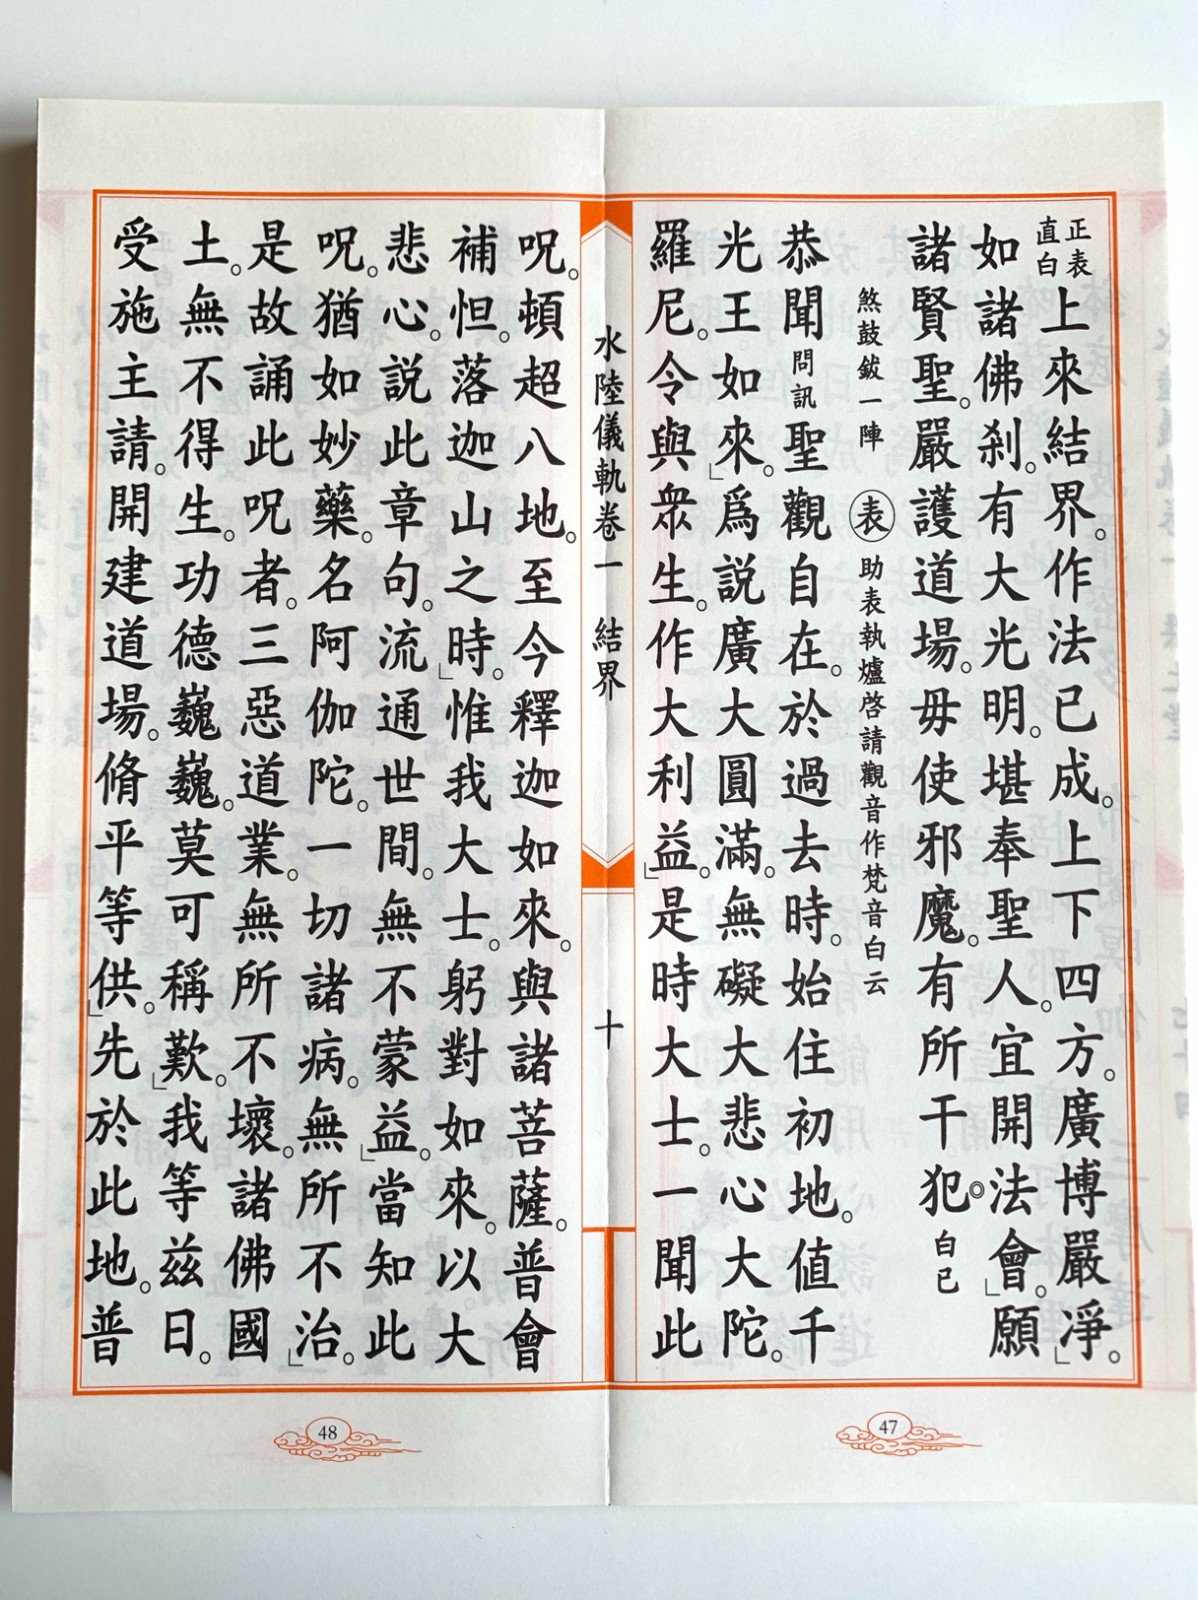 正表
直白
上來結界。作法已成。上下四方。廣博嚴淨。」
如諸佛刹。有大光明。堪奉聖人。宜開法會。」願
諸賢聖。嚴護道場。毋使邪魔。有所干犯。◎白已
煞鼓鈸一陣 表 助表執爐啓請觀音作梵音白云
恭聞問訊聖觀自在。於過去時。始住初地。值千
光王如來。」爲說廣大圓滿。無礙大悲心大陀。
羅尼。令與眾生。作大利益。」是時大士。一聞此
47
水陸儀軌卷一 結界 十
呪。頓超八地。至今釋迦如來。與諸菩薩。普會
補怛。落迦山之時。」惟我大士。躬對如來。以大
悲心。說此章句。流通世間。無不蒙益。」當知此
呪。猶如妙藥。名阿伽陀。一切諸病。無所不治。」
是故誦此呪者。三惡道業。無所不壞。諸佛國
土。無不得生。功德巍巍。莫可稱歎。」我等茲日。
受施主請。開建道場。脩平等供。」先於此地。普
48